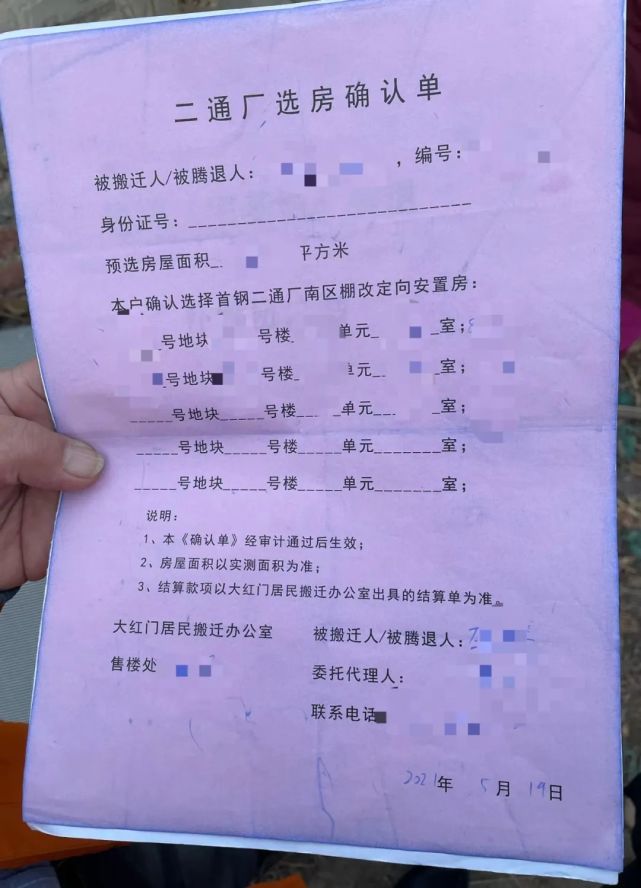 二通厂选房确认单
被搬迁人/被腾退人： ，编号：
身份证号：____________________
预选房屋面积 平方米
本户确认选择首钢二通厂南区棚改定向安置房：
号地块 号楼 单元 室；
号地块 号楼 单元 室；
_____号地块_____号楼 单元 室；
_____号地块_____号楼_____单元_______室；
_____号地块_____号楼_____单元_______室；
说明：
1、本《确认单》经审计通过后生效；
2、房屋面积以实测面积为准；
3、结算款项以大红门居民搬迁办公室出具的结算单为准。
大红门居民搬迁办公室 被搬迁人/被腾退人：
售楼处 委托代理人：
联系电话
2021年 5月 19日